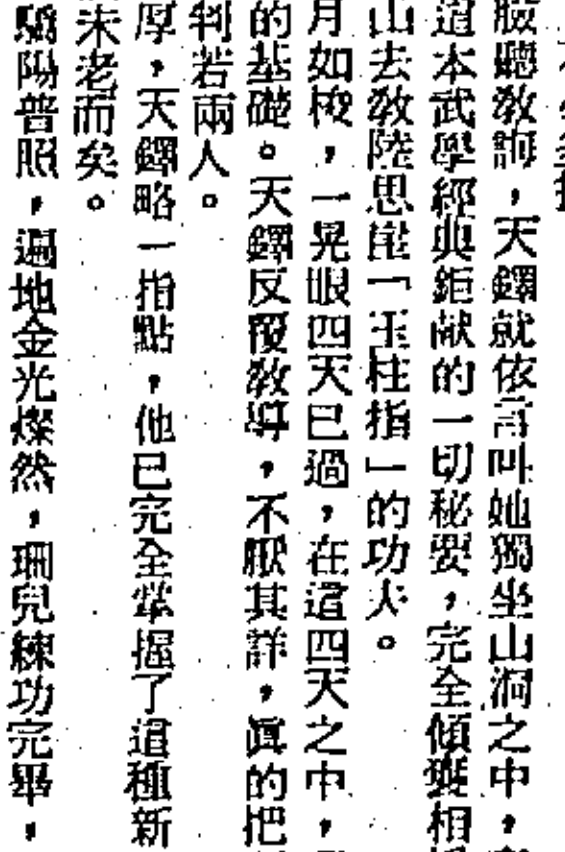 臉聽教詢，天鐸就依言叫她獨坐山洞之中，
這本武學經典鉅献的一切秘要，完全傾囊相
山去敎陸思崖「玉柱指」的功夫。
月如梭，一晃眼四天已過，在這四天之中，
的基礎。天鐸反覆敎導，不厭其詳，眞的把
判若兩人。
厚，天鐸略一指點，他已完全掌握了這種新
未老而矣。
驕陽普照，遍地金光燦然，珊兒練功完畢，